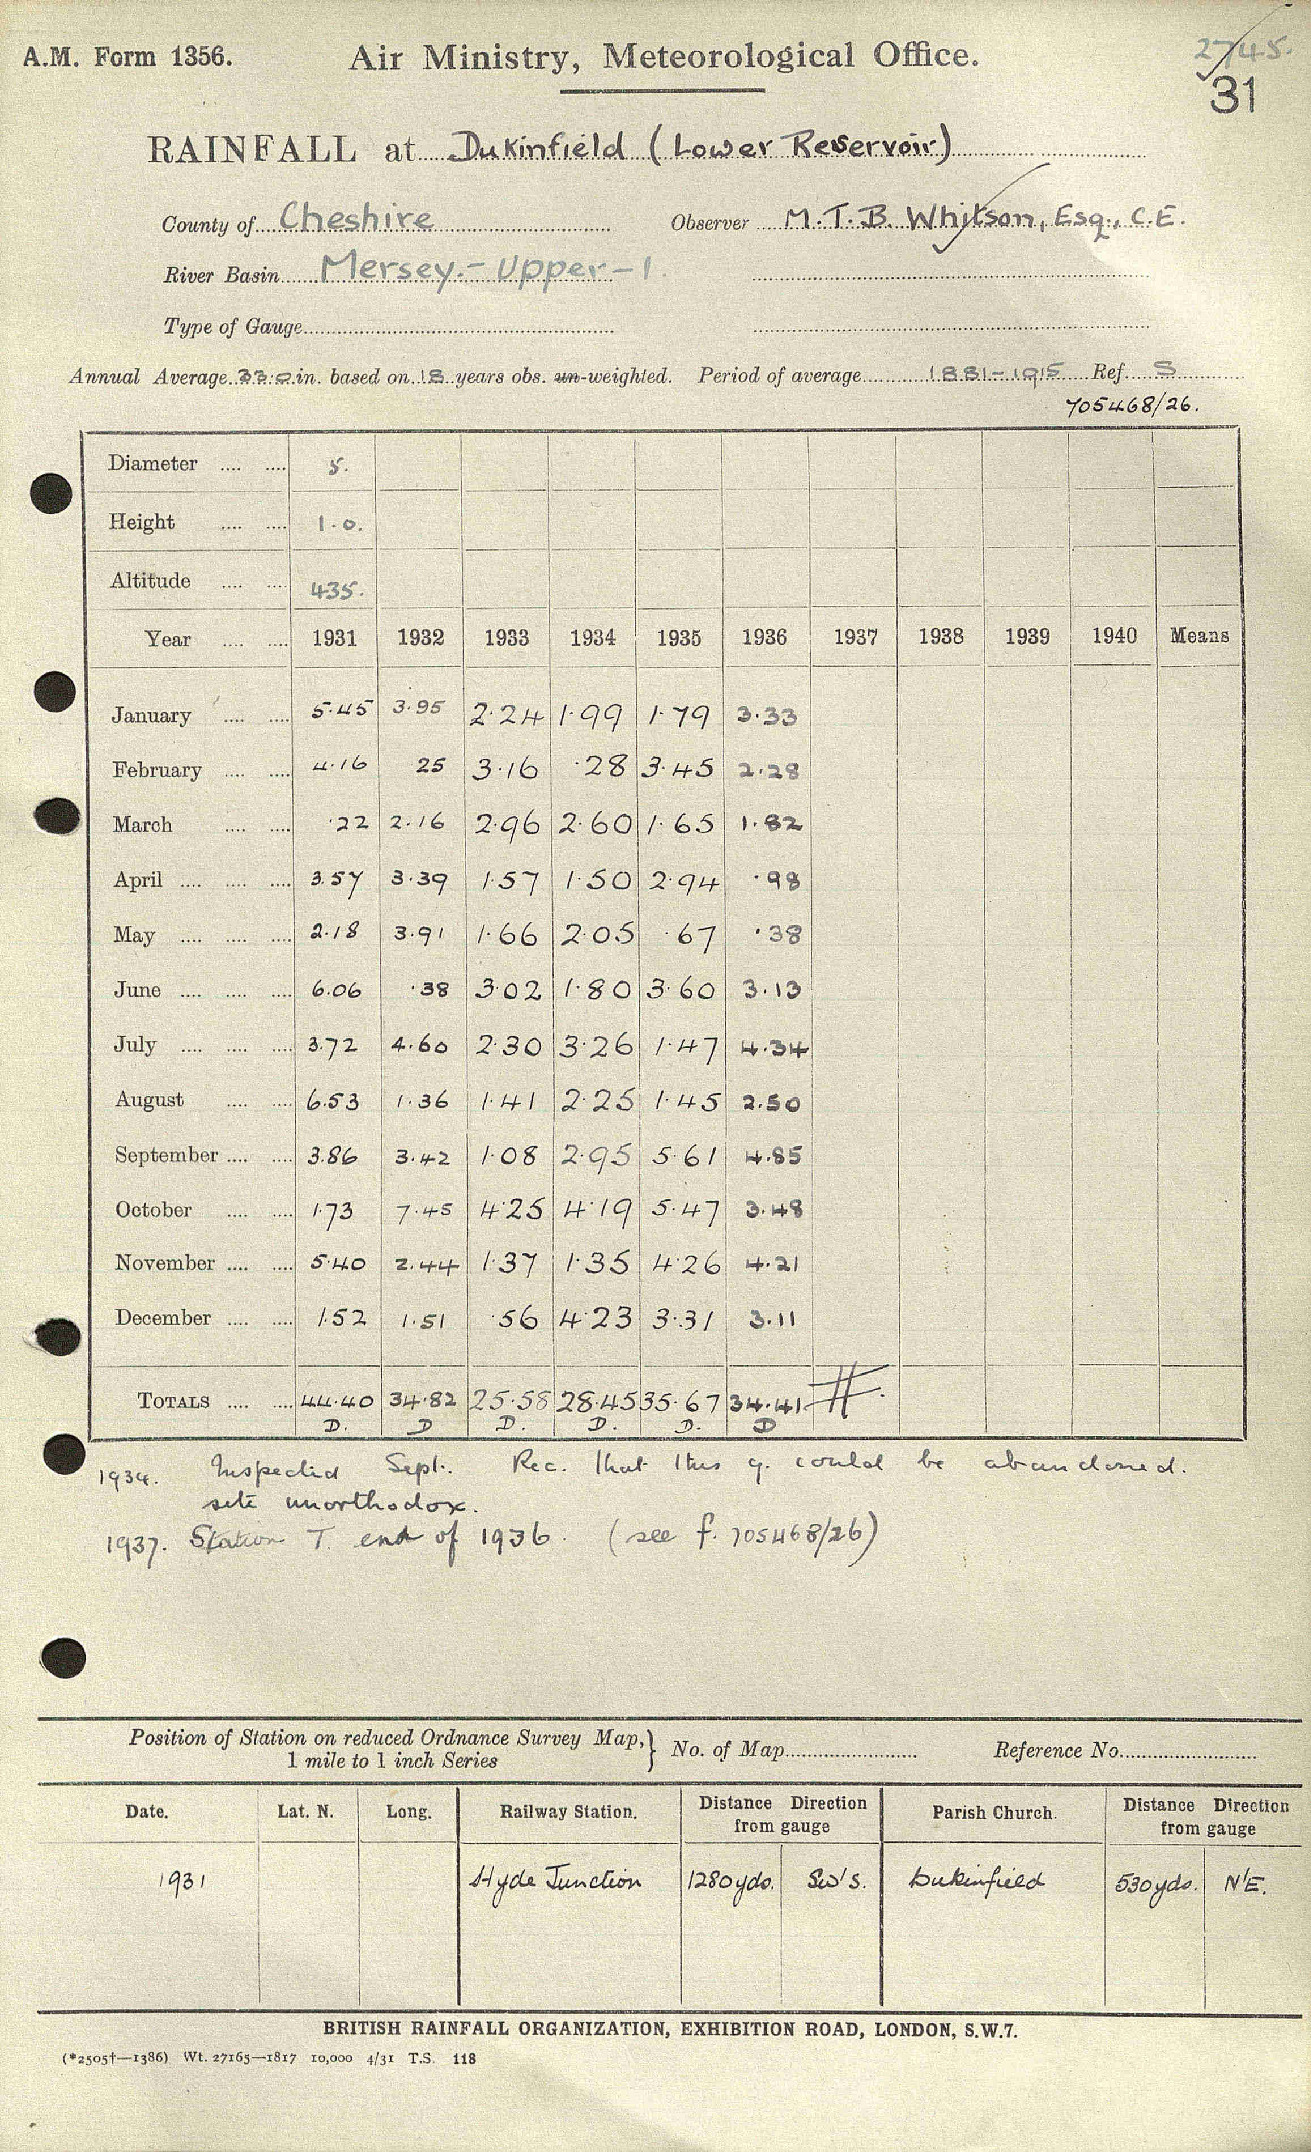 A.M. Form 1356.
Air Ministry, Meteorological Office.
2745.
31
RAINFALL at Dukinfield (Lower Reservoir)
County of Cheshire Observer M.T.B. Whitson, Esq., C.E.
River Basin Mersey.-Upper-1.
Type of Gauge
Annual Average 33.0 in. based on 18 years obs. un-weighted. Period of average 1881-1915 Ref. S
705468/26.
Diameter .... .... 5.
Height .... .... 1.0.
Altitude .... .... 435.
Year .... .... 1931 1932 1933 1934 1935 1936 1937 1938 1939 1940 Means
January .... .... 5.45 3.95 2.24 1.99 1.79 3.33
February .... .... 4.16 25 3.16 .28 3.45 2.28
March .... .... .22 2.16 2.96 2.60 1.65 1.82
April .... .... .... 3.57 3.39 1.57 1.50 2.94 .98
May .... .... .... 2.18 3.91 1.66 2.05 .67 .38
June .... .... .... 6.06 .38 3.02 1.80 3.60 3.13
July .... .... .... 3.72 4.60 2.30 3.26 1.47 4.34
August .... .... 6.53 1.36 1.41 2.25 1.45 2.50
September .... .... 3.86 3.42 1.08 2.95 5.61 4.85
October .... .... 1.73 7.45 4.25 4.19 5.47 3.48
November .... .... 5.40 2.44 1.37 1.35 4.26 4.21
December .... .... 1.52 1.51 .56 4.23 3.31 3.11
TOTALS .... .... 44.40 34.82 25.58 28.45 35.67 34.41 #.
D. D D. D. D. D
1934. Inspected Sept. Rec. that this g. could be abandoned.
site unorthodox.
1937. Station T. end of 1936. (see f. 705468/26)
Position of Station on reduced Ordnance Survey Map,} No. of Map Reference No.
1 mile to 1 inch Series
Date. Lat. N. Long. Railway Station. Distance Direction from gauge Parish Church. Distance Direction from gauge
1931 Hyde Junction 1280 yds. SW'S. Dukinfield 530 yds. N'E.
BRITISH RAINFALL ORGANIZATION, EXHIBITION ROAD, LONDON, S.W.7.
(*2505†—1386) Wt. 27165—1817 10,000 4/31 T.S. 118